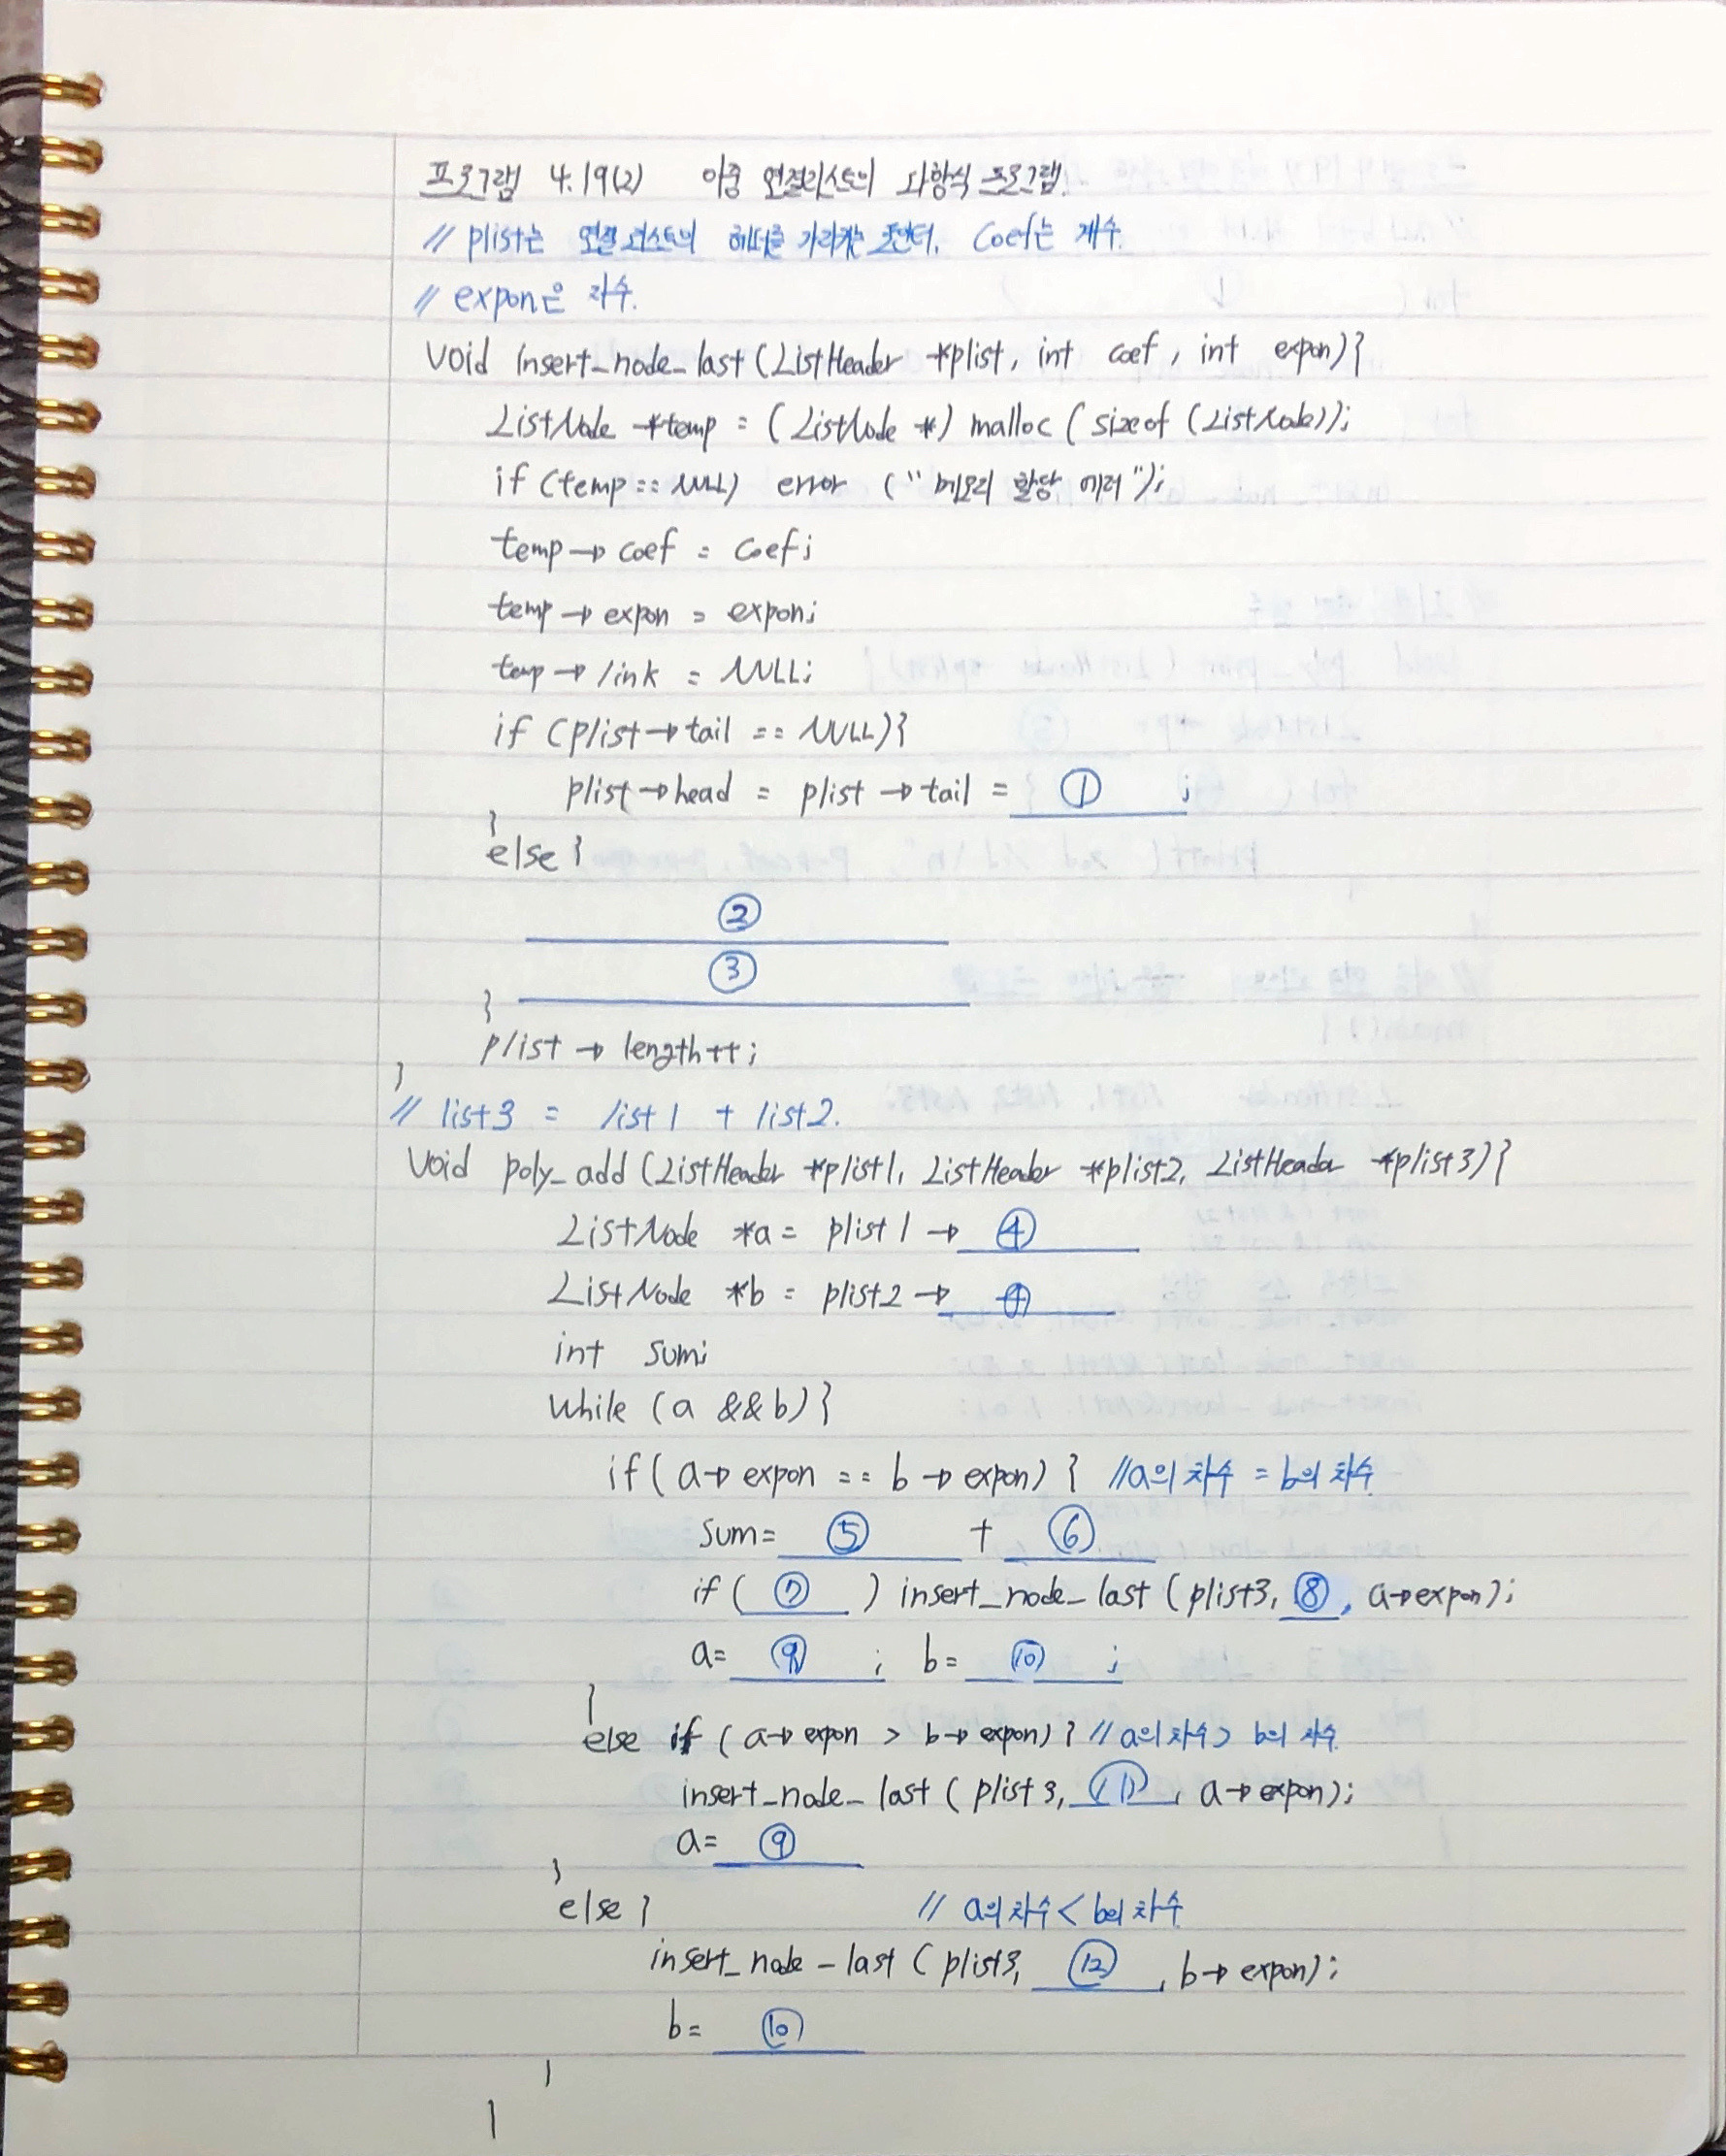 프로그램 4.19(2) 이중 연결리스트의 다항식 프로그램.
// plist는 연결 리스트의 헤더를 가리키는 포인터, coef는 계수.
// expon은 차수.
void insert_node_last (ListHeader *plist, int coef, int expon){
ListNode *temp = (ListNode *) malloc (sizeof (ListNode));
if (temp == NULL) error ("메모리 할당 에러");
temp → coef = coef;
temp → expon = expon;
temp → link = NULL;
if (plist → tail == NULL){
plist → head = plist → tail = ① ;
}
else {
②
③
}
plist → length++;
}
// list3 = list1 + list2.
void poly_add (ListHeader *plist1, ListHeader *plist2, ListHeader *plist3){
ListNode *a = plist1 → ④
ListNode *b = plist2 → ④
int sum;
while (a && b){
if (a → expon == b → expon) { //a의 차수 = b의 차수
sum= ⑤ + ⑥
if ( ⑦ ) insert_node_last (plist3, ⑧, a→expon);
a= ⑨ ; b= ⑩ ;
}
else if (a → expon > b → expon) { // a의 차수 > b의 차수
insert_node_last ( plist3, ⑪, a → expon);
a= ⑨
}
else { // a의 차수 < b의 차수
insert_node_last ( plist3, ⑫, b → expon);
b= ⑩
}
}